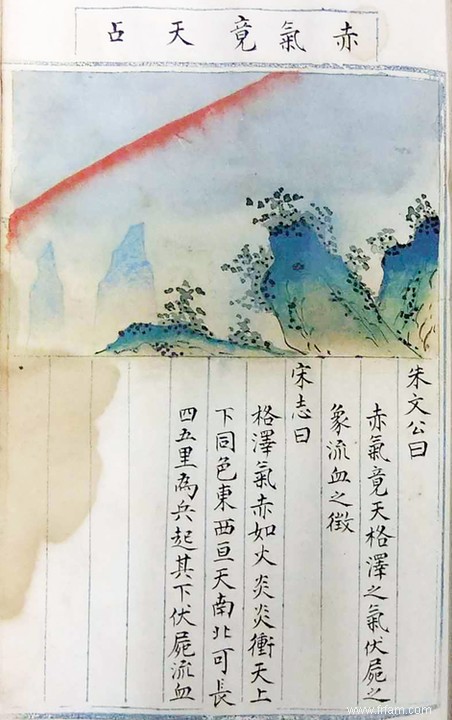 赤氣竟天占
朱文公曰
赤氣竟天格澤之氣伏屍之
象流血之徵
宋志曰
格澤氣赤如火炎炎衝天上
下同色東西亘天南北可長
四五里為兵起其下伏屍流血
www.frfam.com